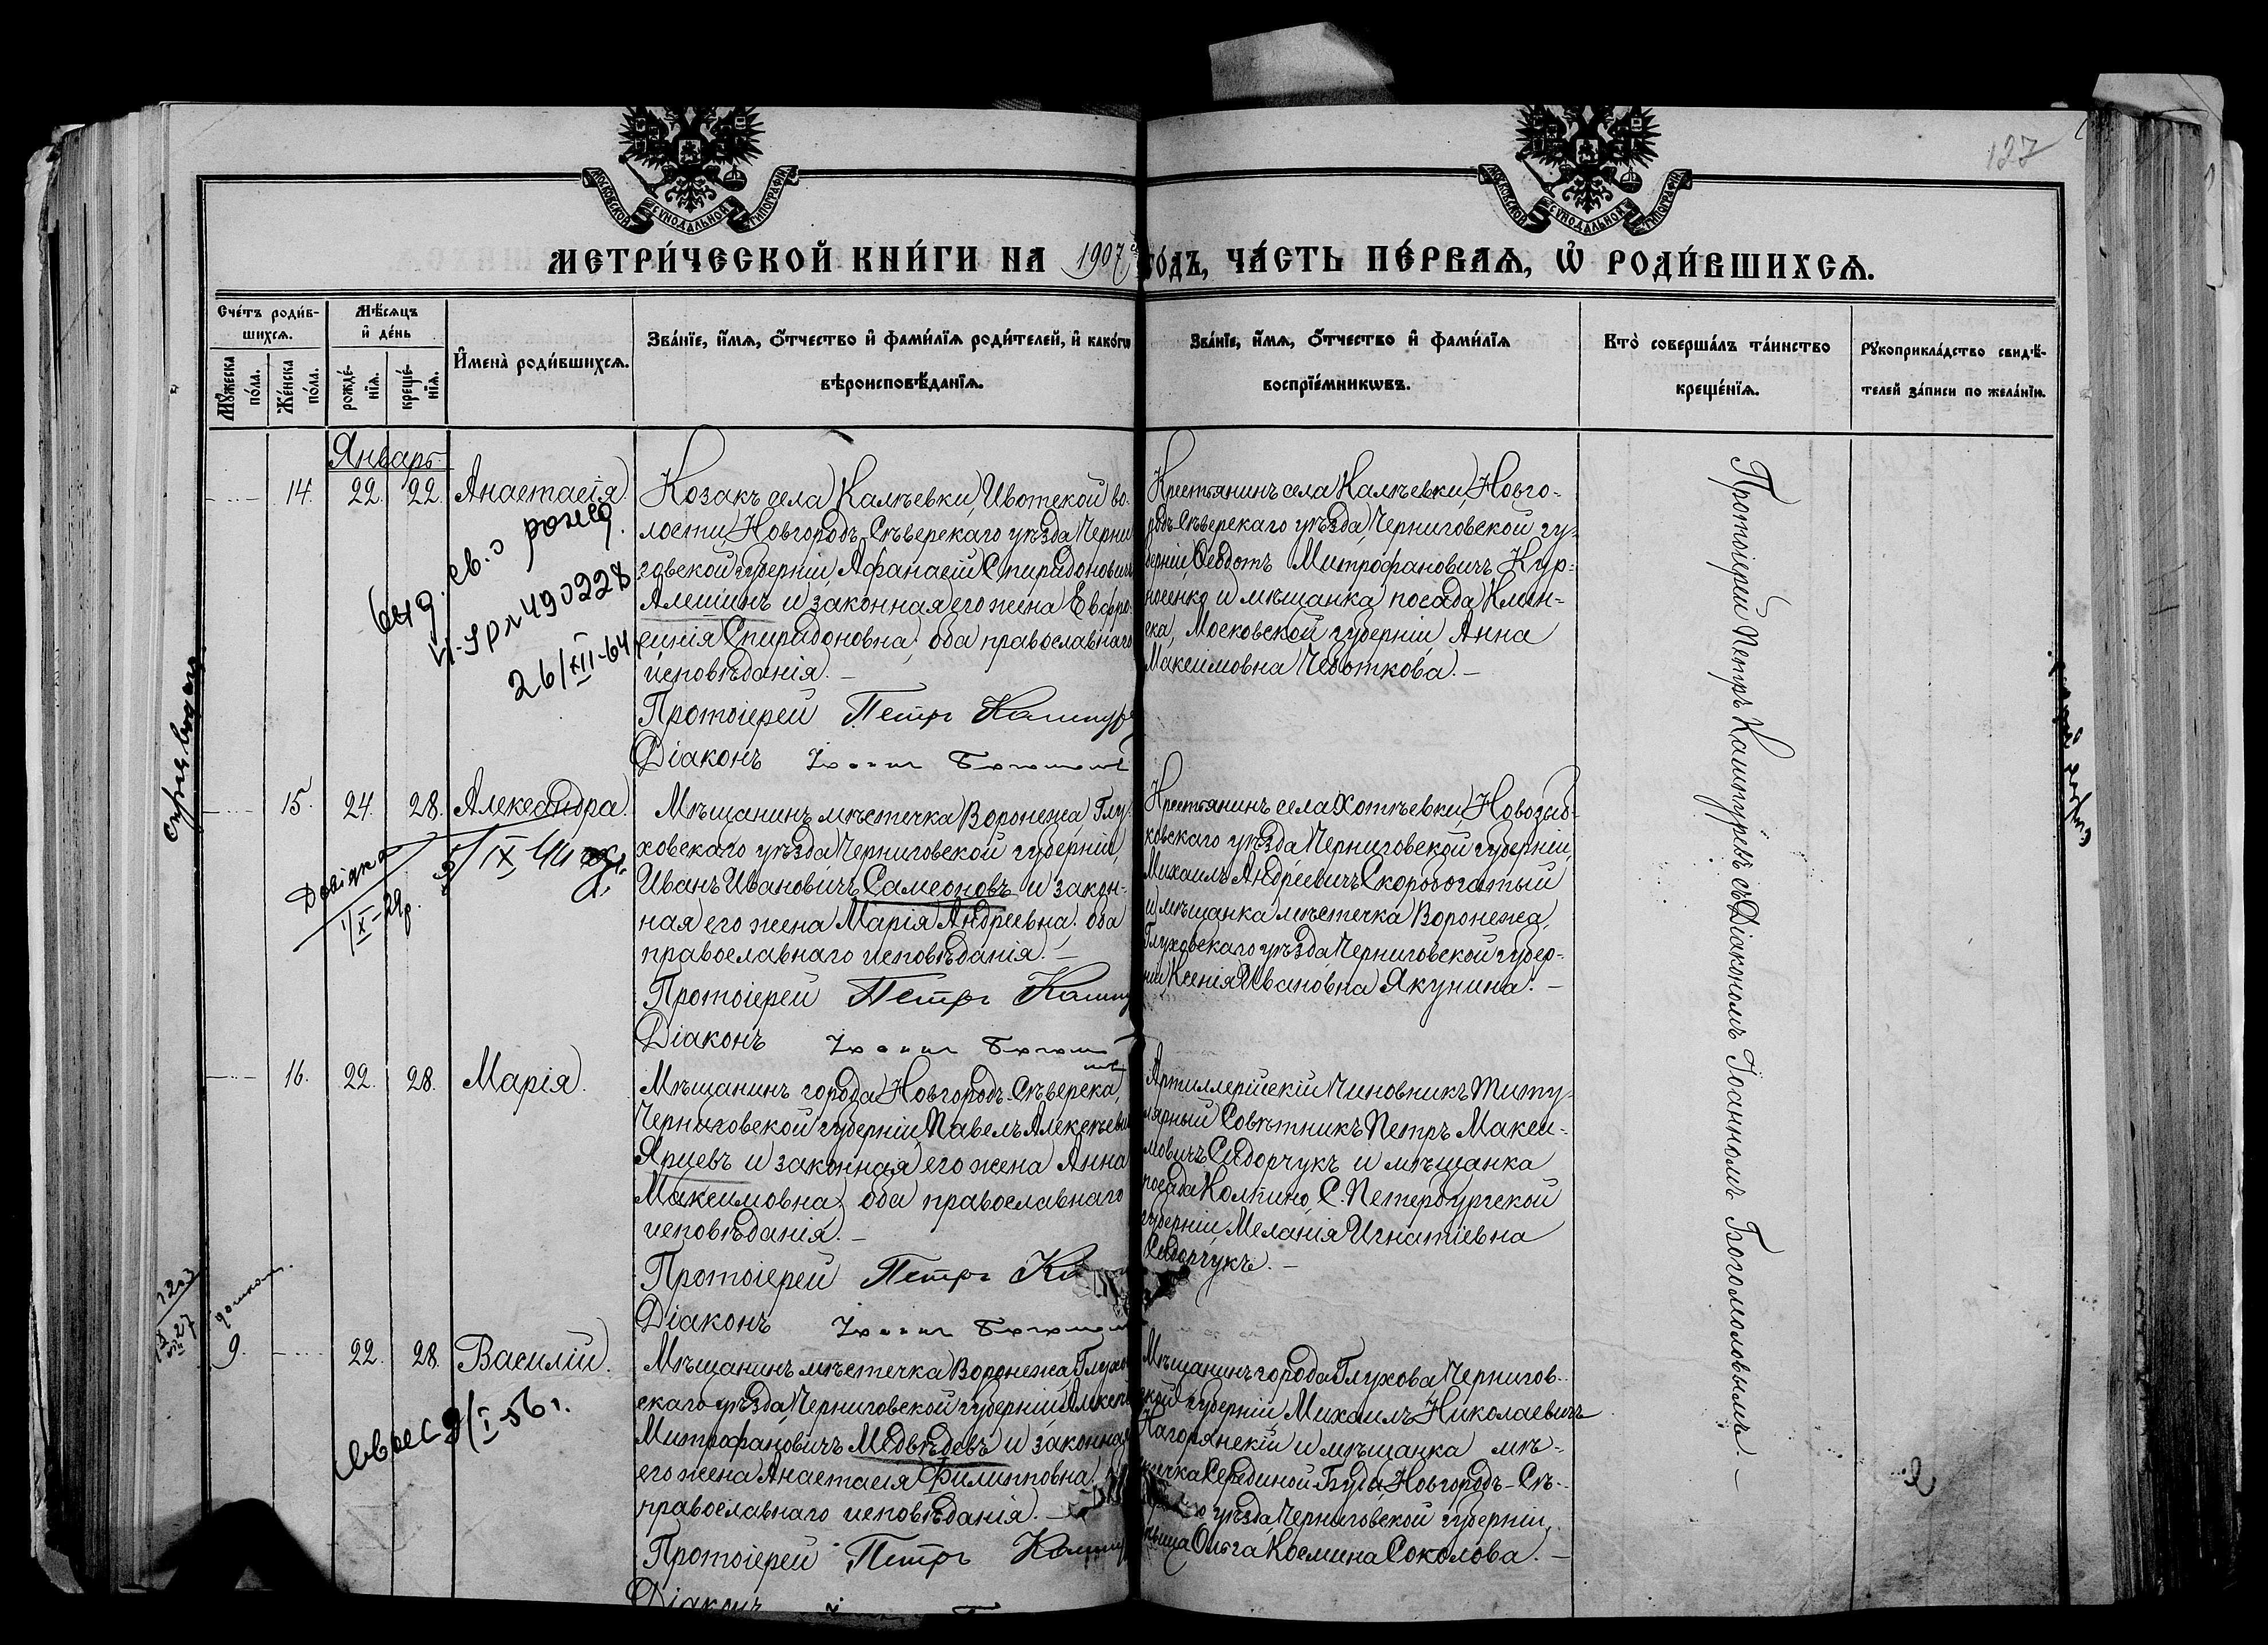 127
МОСКОВСКОЙ СУНОДАЛЬНОЙ ТИПОГРАФIИ
МОСКОВСКОЙ СУНОДАЛЬНОЙ ТИПОГРАФIИ
МЕТРИ́ЧЕСКОЙ КНИ́ГИ НА 1907 ГОДЪ, ЧА́СТЬ ПЕ́РВАѦ, Ѡ РОДИ́ВШИХСѦ.
Сче́тъ роди́в-
шихсѧ.
Мꙋжеска по́ла.
Же́нска по́ла.
Мѣ́сѧцъ
и҆ де́нь
рожде́-
нїѧ.
креще́-
нїѧ.
И҆мена̀ роди́вшихсѧ.
Зва́нїе, и҆́мѧ, ѻ҆́тчество и҆ фами́лїѧ роди́телей, и҆ како́гѡ
вѣроисповѣ́данїѧ.
Зва́нїе, и҆́мѧ, ѻ҆́тчество и҆ фами́лїѧ
воспрїе́мникѡвъ.
Кто̀ соверша́лъ та́инство
креще́нїѧ.
Рꙋкоприкла́дство свидѣ́-
телей за́писи по жела́нїю.
Январь.
14. 22. 22. Анастасія.
Козакъ села Калѣевки, Ивотской во-
лости, Новгородъ-Сѣверскаго уѣзда Черни
говской губерніи, Афанасій Спиридоновичъ
Алешинъ и законная его жена Евфро-
синія Спиридоновна, оба православнаго
исповѣданія. —
Протоіерей Петръ
Діаконъ
Крестьянинъ села Калѣевки, Новго-
родъ-Сѣверскаго уѣзда Черниговской гу-
берніи, Ѳеодотъ Митрофановичъ Кур-
носенко и мѣщанка посада Клин-
ска, Московской губерніи, Анна
Максимовна Чеботкова. —
рожд.
26/XII-64
15. 24. 28. Александра.
Мѣщанинъ мѣстечка Воронежа Глу-
ховскаго уѣзда Черниговской губерніи,
Иванъ Ивановичъ Самсоновъ и закон-
ная его жена Марія Андреевна, оба
православнаго исповѣданія. —
Протоіерей Петръ
Діаконъ
Крестьянинъ села Хотѣевки, Новозыб-
ковскаго уѣзда Черниговской губерніи,
Михаилъ Андреевичъ Скоробогатый
и мѣщанка мѣстечка Воронежа,
Глуховскаго уѣзда Черниговской губер-
ніи Ксенія Ивановна Якунина. —
Довідка
1/X-29р.
5/IX 44
16. 22. 28. Марія.
Мѣщанинъ города Новгородъ-Сѣверска,
Черниговской губерніи Павелъ Алексѣеви
Ярцевъ и законная его жена Анна
Максимовна, оба православнаго
исповѣданія. —
Протоіерей Петръ
Діаконъ
Артиллерійскій Чиновникъ Титу-
лярный Совѣтникъ Петръ Макси-
мовичъ Сидорчукъ и мѣщанка
посада Колпино, С. Петербургской
губерніи, Меланія Игнатіевна
Сидорчукъ. —
9. 22. 28. Василій.
Мѣщанинъ мѣстечка Воронежа Глухо
скаго уѣзда, Черниговской губерніи Алексѣ
Митрофановичъ Медвѣдевъ и законная
его жена Анастасія Филипповна,
православнаго исповѣданія. —
Протоіерей Петръ
Діаконъ
Мѣщанинъ города Глухова Чернигов-
ской губерніи, Михаилъ Николаевичъ
Нагорянскій и мѣщанка мѣ-
стечка Серединой Буды, Новгородъ-Сѣ-
уѣзда, Черниговской губерніи,
Ольга Космина Соколова. —
9/I-56 г.
Протоіерей Петръ Каштуревъ съ Діакономъ Іоанномъ Богомоловымъ. —